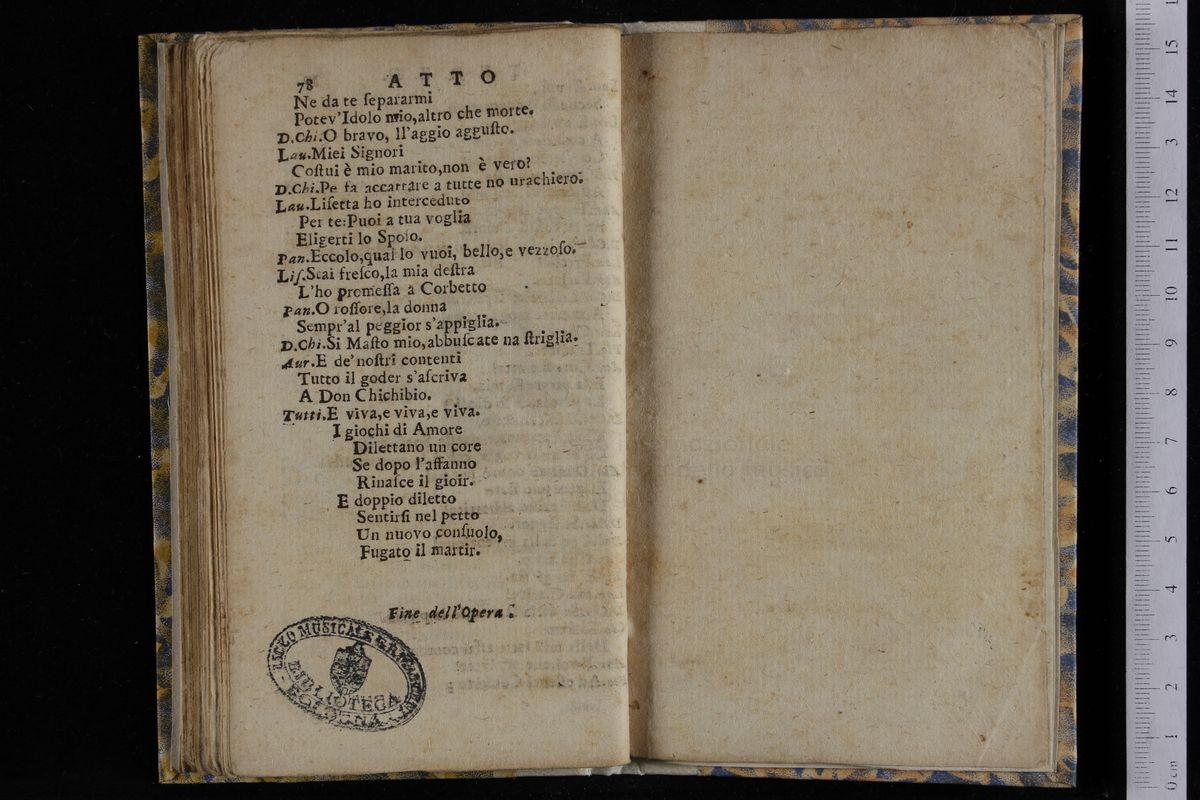 78 ATTO
Ne da te ſepararmi
Potev'Idolo mio,altro che morte.
D.Chi.O bravo, ll'aggio agguſto.
Lau.Miei Signori
Coſtui è mio marito,non è vero?
D.Chi.Pe fa accattare a tutte no urachiero.
Lau.Liſetta ho interceduto
Per te:Puoi a tua voglia
Eligerti lo Spoſo.
Pan.Eccolo,qual lo vuoi, bello,e vezzoſo.
Liſ.Stai freſco,la mia deſtra
L'ho promeſſa a Corbetto
Pan.O roſſore,la donna
Sempr'al peggior s'appiglia.
D.Chi.Si Maſto mio,abbuſcate na ſtriglia.
Aur.E de'noſtri contenti
Tutto il goder s'aſcriva
A Don Chichibio.
Tutti.E viva,e viva,e viva.
I giochi di Amore
Dilettano un core
Se dopo l'affanno
Rinaſce il gioir.
E doppio diletto
Sentirſi nel petto
Un nuovo conſuolo,
Fugato il martir.
Fine dell'Opera.
LICEO MUSICALE
BIBLIOTECA
BOLOGNA
0 cm 1 2 3 4 5 6 7 8 9 10 11 12 3 14 15